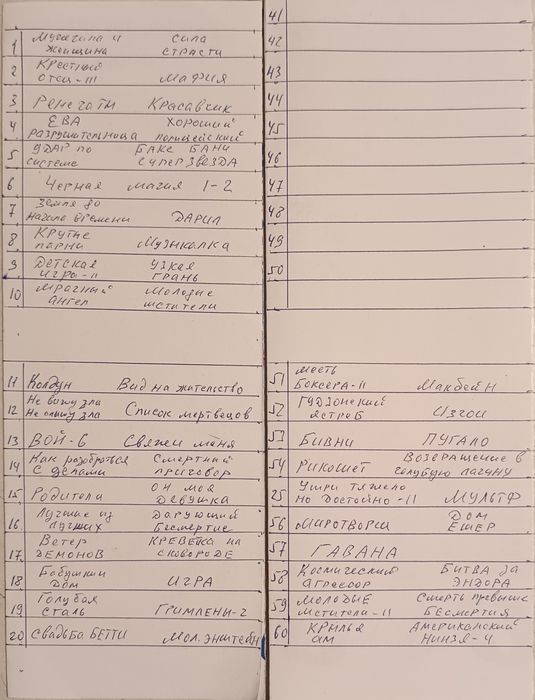 1 Мужчина и женщина Сила страсти
2 Крестный отец-III Мафия
3 Ренегаты Красавчик
4 ЕВА разрушительница Хороший полицейский
5 Удар по системе Бакс Бани суперзвезда
6 Черная магия 1-2
7 Земля до начала времени ДАРИЛ
8 Крутые парни Музыкалка
9 Детская игра-II Узкая грань
10 Мрачный ангел Молодые мстители
11 Колдун Вид на жительство
12 Не вижу зла Не слышу зла Список мертвецов
13 ВОЙ-6 Свяжи меня
14 Как разобраться с делами Смертный приговор
15 Родители Он моя девушка
16 Лучшие из лучших Дарующий бесмертие
17 Ветер демонов Креветка на сковороде
18 Бабушкин дом ИГРА
19 Голубая сталь Гримлени-2
20 Свадьба БЕТТИ Мол. Энштейн
41
42
43
44
45
46
47
48
49
50
51 Месть боксера-II Макбейн
52 Гудзонский ястреб Изгои
53 Бивни ПУГАЛО
54 Рикошет Возеращение в голубую лагуну
25 Умри тяжело но достойно-II МУЛЬТФ
56 Миротворец ДОМ ЕШЕР
57 ГАВАНА
58 Космический агрессор БИТВА за ЭНДОРА
59 МОЛОДЫЕ мстители-II Смерть превыше бесмертия
60 КРЫЛЬЯ АМ Американский нинзя-4